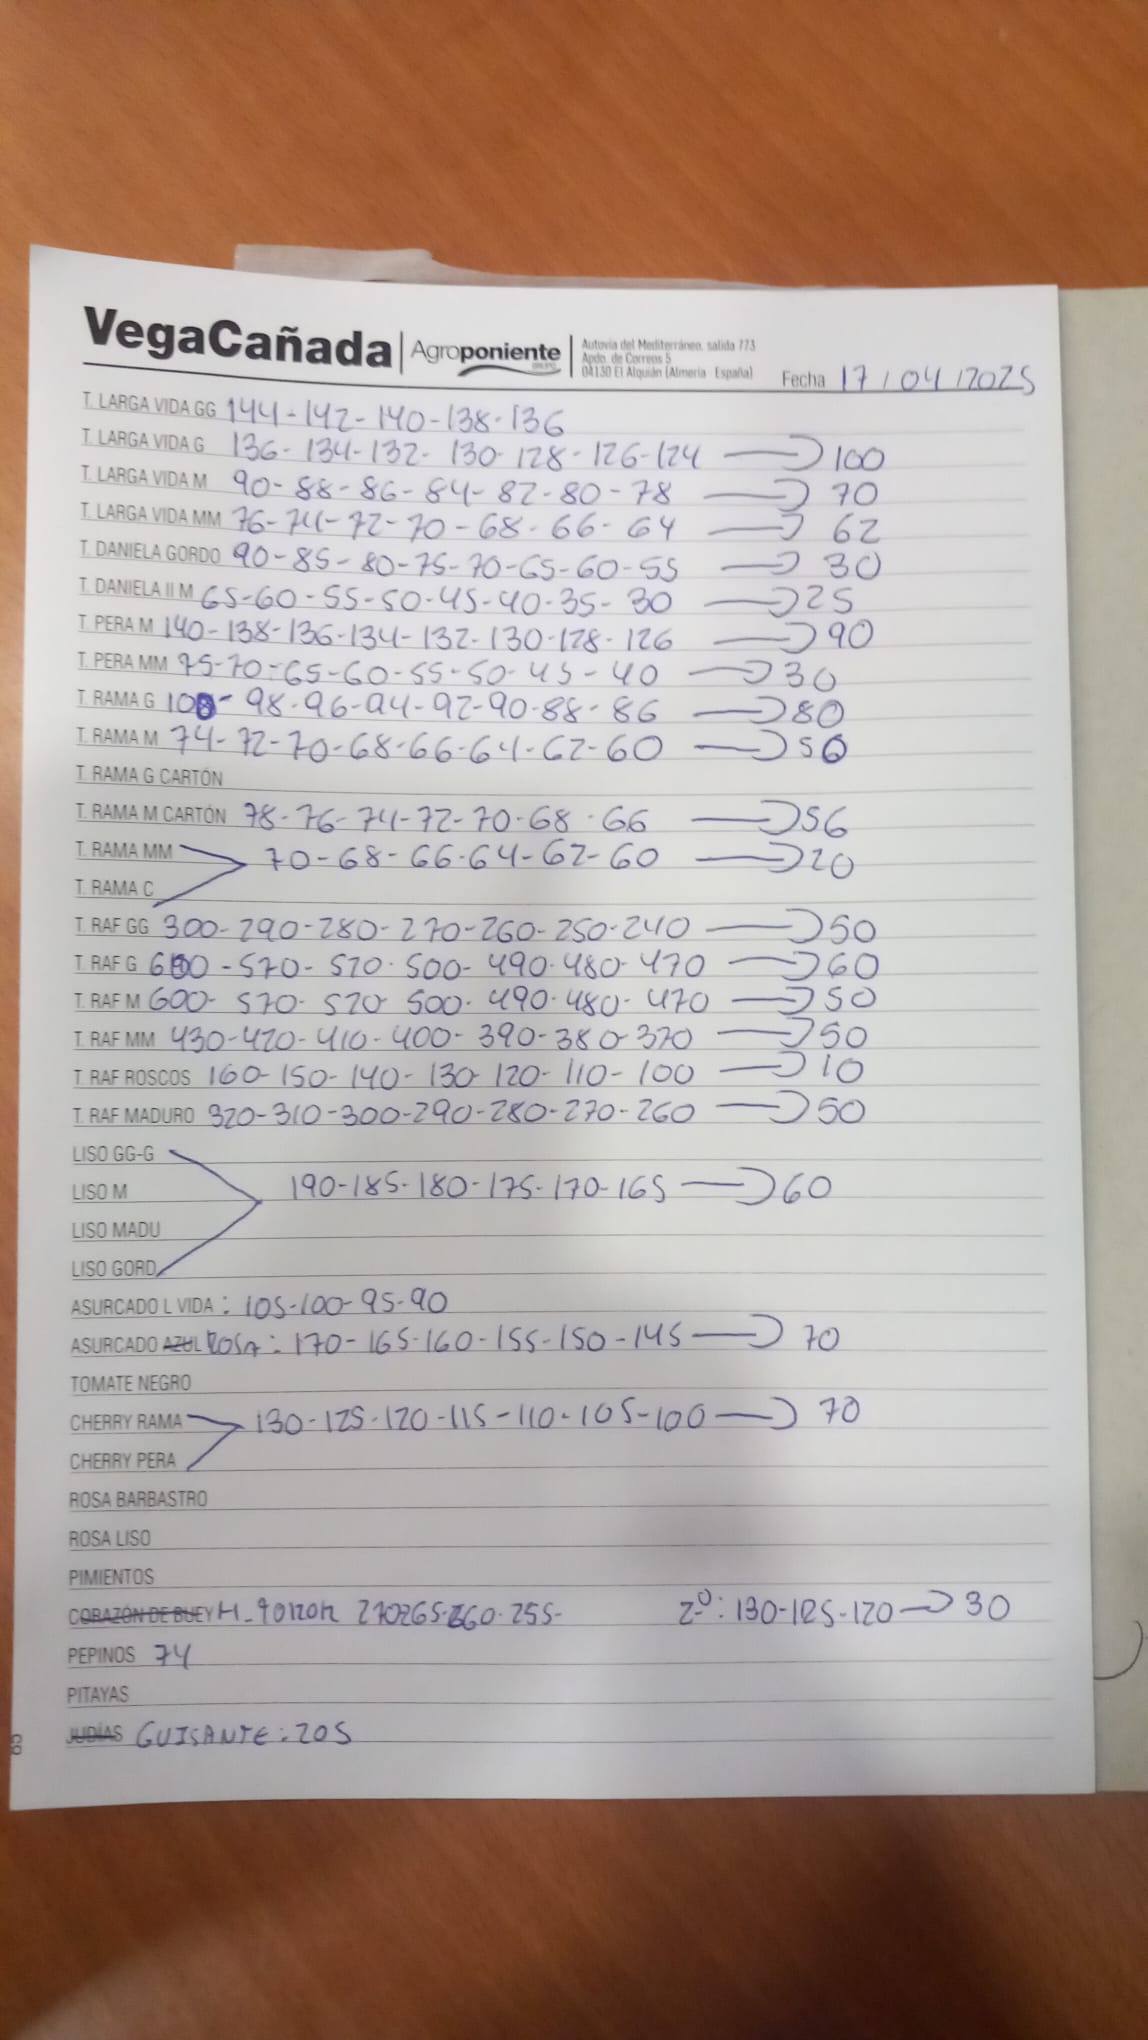 VegaCañada | Agroponiente GRUPO
Autovía del Mediterráneo, salida 773
Apdo. de Correos 5
04130 El Alquián (Almería España)
Fecha 17/04/2025
T. LARGA VIDA GG 144-142-140-138-136
T. LARGA VIDA G 136-134-132-130-128-126-124 → 100
T. LARGA VIDA M 90-88-86-84-82-80-78 → 70
T. LARGA VIDA MM 76-74-72-70-68-66-64 → 62
T. DANIELA GORDO 90-85-80-75-70-65-60-55 → 30
T. DANIELA II M 65-60-55-50-45-40-35-30 → 25
T. PERA M 140-138-136-134-132-130-128-126 → 90
T. PERA MM 75-70-65-60-55-50-45-40 → 30
T. RAMA G 100-98-96-94-92-90-88-86 → 80
T. RAMA M 74-72-70-68-66-64-62-60 → 56
T. RAMA G CARTÓN
T. RAMA M CARTÓN 78-76-74-72-70-68-66 → 56
T. RAMA MM 70-68-66-64-62-60 → 20
T. RAMA C
T. RAF GG 300-290-280-270-260-250-240 → 50
T. RAF G 600-570-520-500-490-480-470 → 60
T. RAF M 600-570-520-500-490-480-470 → 50
T. RAF MM 430-420-410-400-390-380-370 → 50
T. RAF ROSCOS 160-150-140-130-120-110-100 → 10
T. RAF MADURO 320-310-300-290-280-270-260 → 50
LISO GG-G
LISO M 190-185-180-175-170-165 → 60
LISO MADU
LISO GORD
ASURCADO L VIDA: 105-100-95-90
ASURCADO AZUL ROSA: 170-165-160-155-150-145 → 70
TOMATE NEGRO
CHERRY RAMA 130-125-120-115-110-105-100 → 70
CHERRY PERA
ROSA BARBASTRO
ROSA LISO
PIMIENTOS
CORAZÓN DE BUEY 270265-260-255- 2º: 130-125-120 → 30
PEPINOS 74
PITAYAS
JUDÍAS GUISANTE: 205